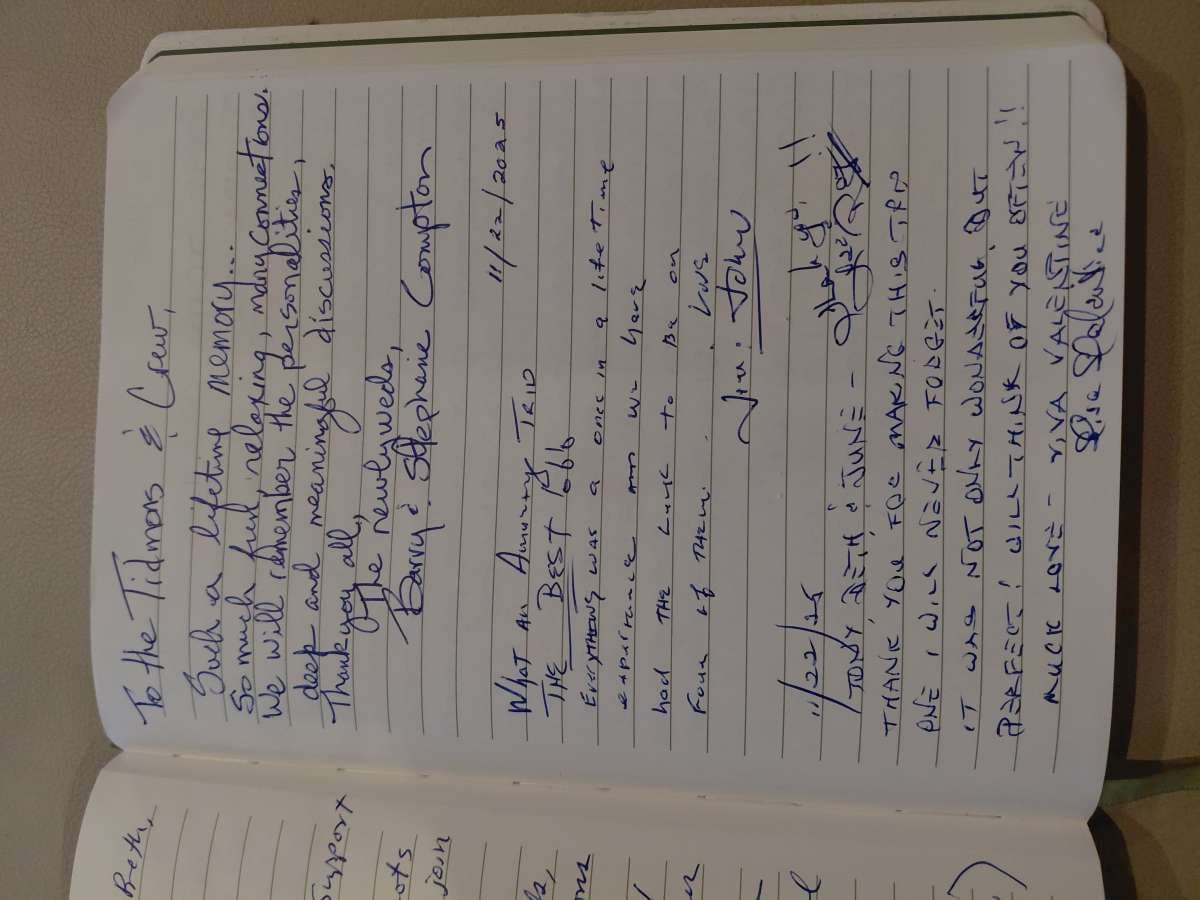 To the Tidmons & Crew,
Such a lifeting memory...
So much fun, relaxing, many connections.
We will remember the personalities,
deep and meaningful discussions.
Thank you all,
The newlyweds,
Barry & Stephanie Compton
11/22/2025
What An Amazing Trip
THE BEST
Everything was a once in a life time
experience and we have
had THE Luck to Be on
Four of Them. Love
Jim & John
11/22/25
TONY, BETH & JUNE -
THANK YOU FOR MAKING THIS TRIP
ONE I WILL NEVER FORGET.
IT WAS NOT ONLY WONDERFUL BUT
PERFECT! WILL THINK OF YOU OFTEN!!
MUCH LOVE - RIVA VALENTINE
Beth,
Support
join